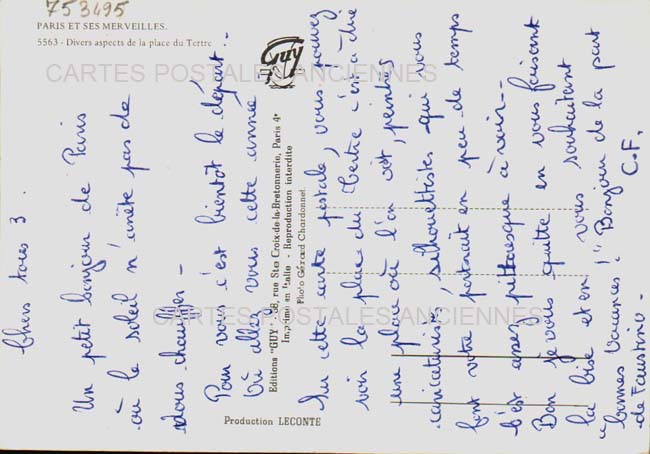 753495
PARIS ET SES MERVEILLES.
5563 - Divers aspects de la place du Tertre
Guy
CARTES POSTALES ANCIENNES
CARTES POSTALES ANCIENNES
Chers tous 3.
Un petit bonjour de Paris
où le soleil n'arrête pas de
nous chauffer -
Pour vous c'est bientôt le départ.-
Où allez vous cette année
Sur cette carte postale, vous pouvez
voir la place du Tertre c'est à dire
une place où l'on voit, peintres
caricaturistes, silhouettistes qui vous
font votre portrait en peu de temps
C'est assez pittoresque à voir--
Bon je vous quitte en vous faisant
la bise et en vous souhaitant
"bonnes vacances!" Bonjour de la part
de Faustino - C.F.
Editions "GUY" rue Ste Croix-de-la-Bretonnerie, Paris 4e
Imprimé en Italie - Reproduction interdite
Photo Gérard Chardonnet
Production LECONTE